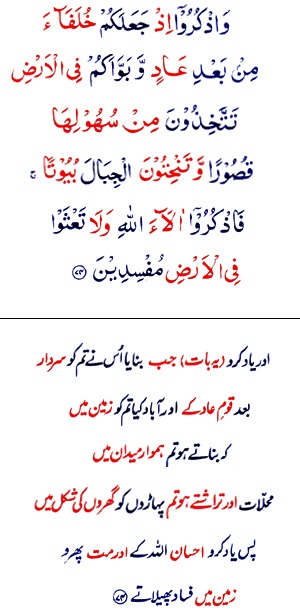 وَاذْكُرُوْۤا اِذْ جَعَلَكُمْ خُلَفَآءَ
مِنْۢ بَعْدِ عَادٍ وَّ بَوَّاَكُمْ فِی الْاَرْضِ
تَتَّخِذُوْنَ مِنْ سُهُوْلِهَا
قُصُوْرًا وَّ تَنْحِتُوْنَ الْجِبَالَ بُيُوْتًا ۚ
فَاذْكُرُوْۤا اٰلَآءَ اللّٰهِ وَلَا تَعْثَوْا
فِی الْاَرْضِ مُفْسِدِيْنَ ﴿۷۴﴾
اور یاد کرو (یہ بات) جب بنایا اُس نے تم کو سردار
بعد قومِ عاد کے اور آباد کیا تم کو زمین میں
کہ بناتے ہو تم ہموار میدان میں
محلّات اور تراشتے ہو تم پہاڑوں کو گھروں کی شکل میں
پس یاد کرو احسان اللہ کے اور مت پھرو
زمین میں فساد پھیلاتے ﴿۷۴﴾